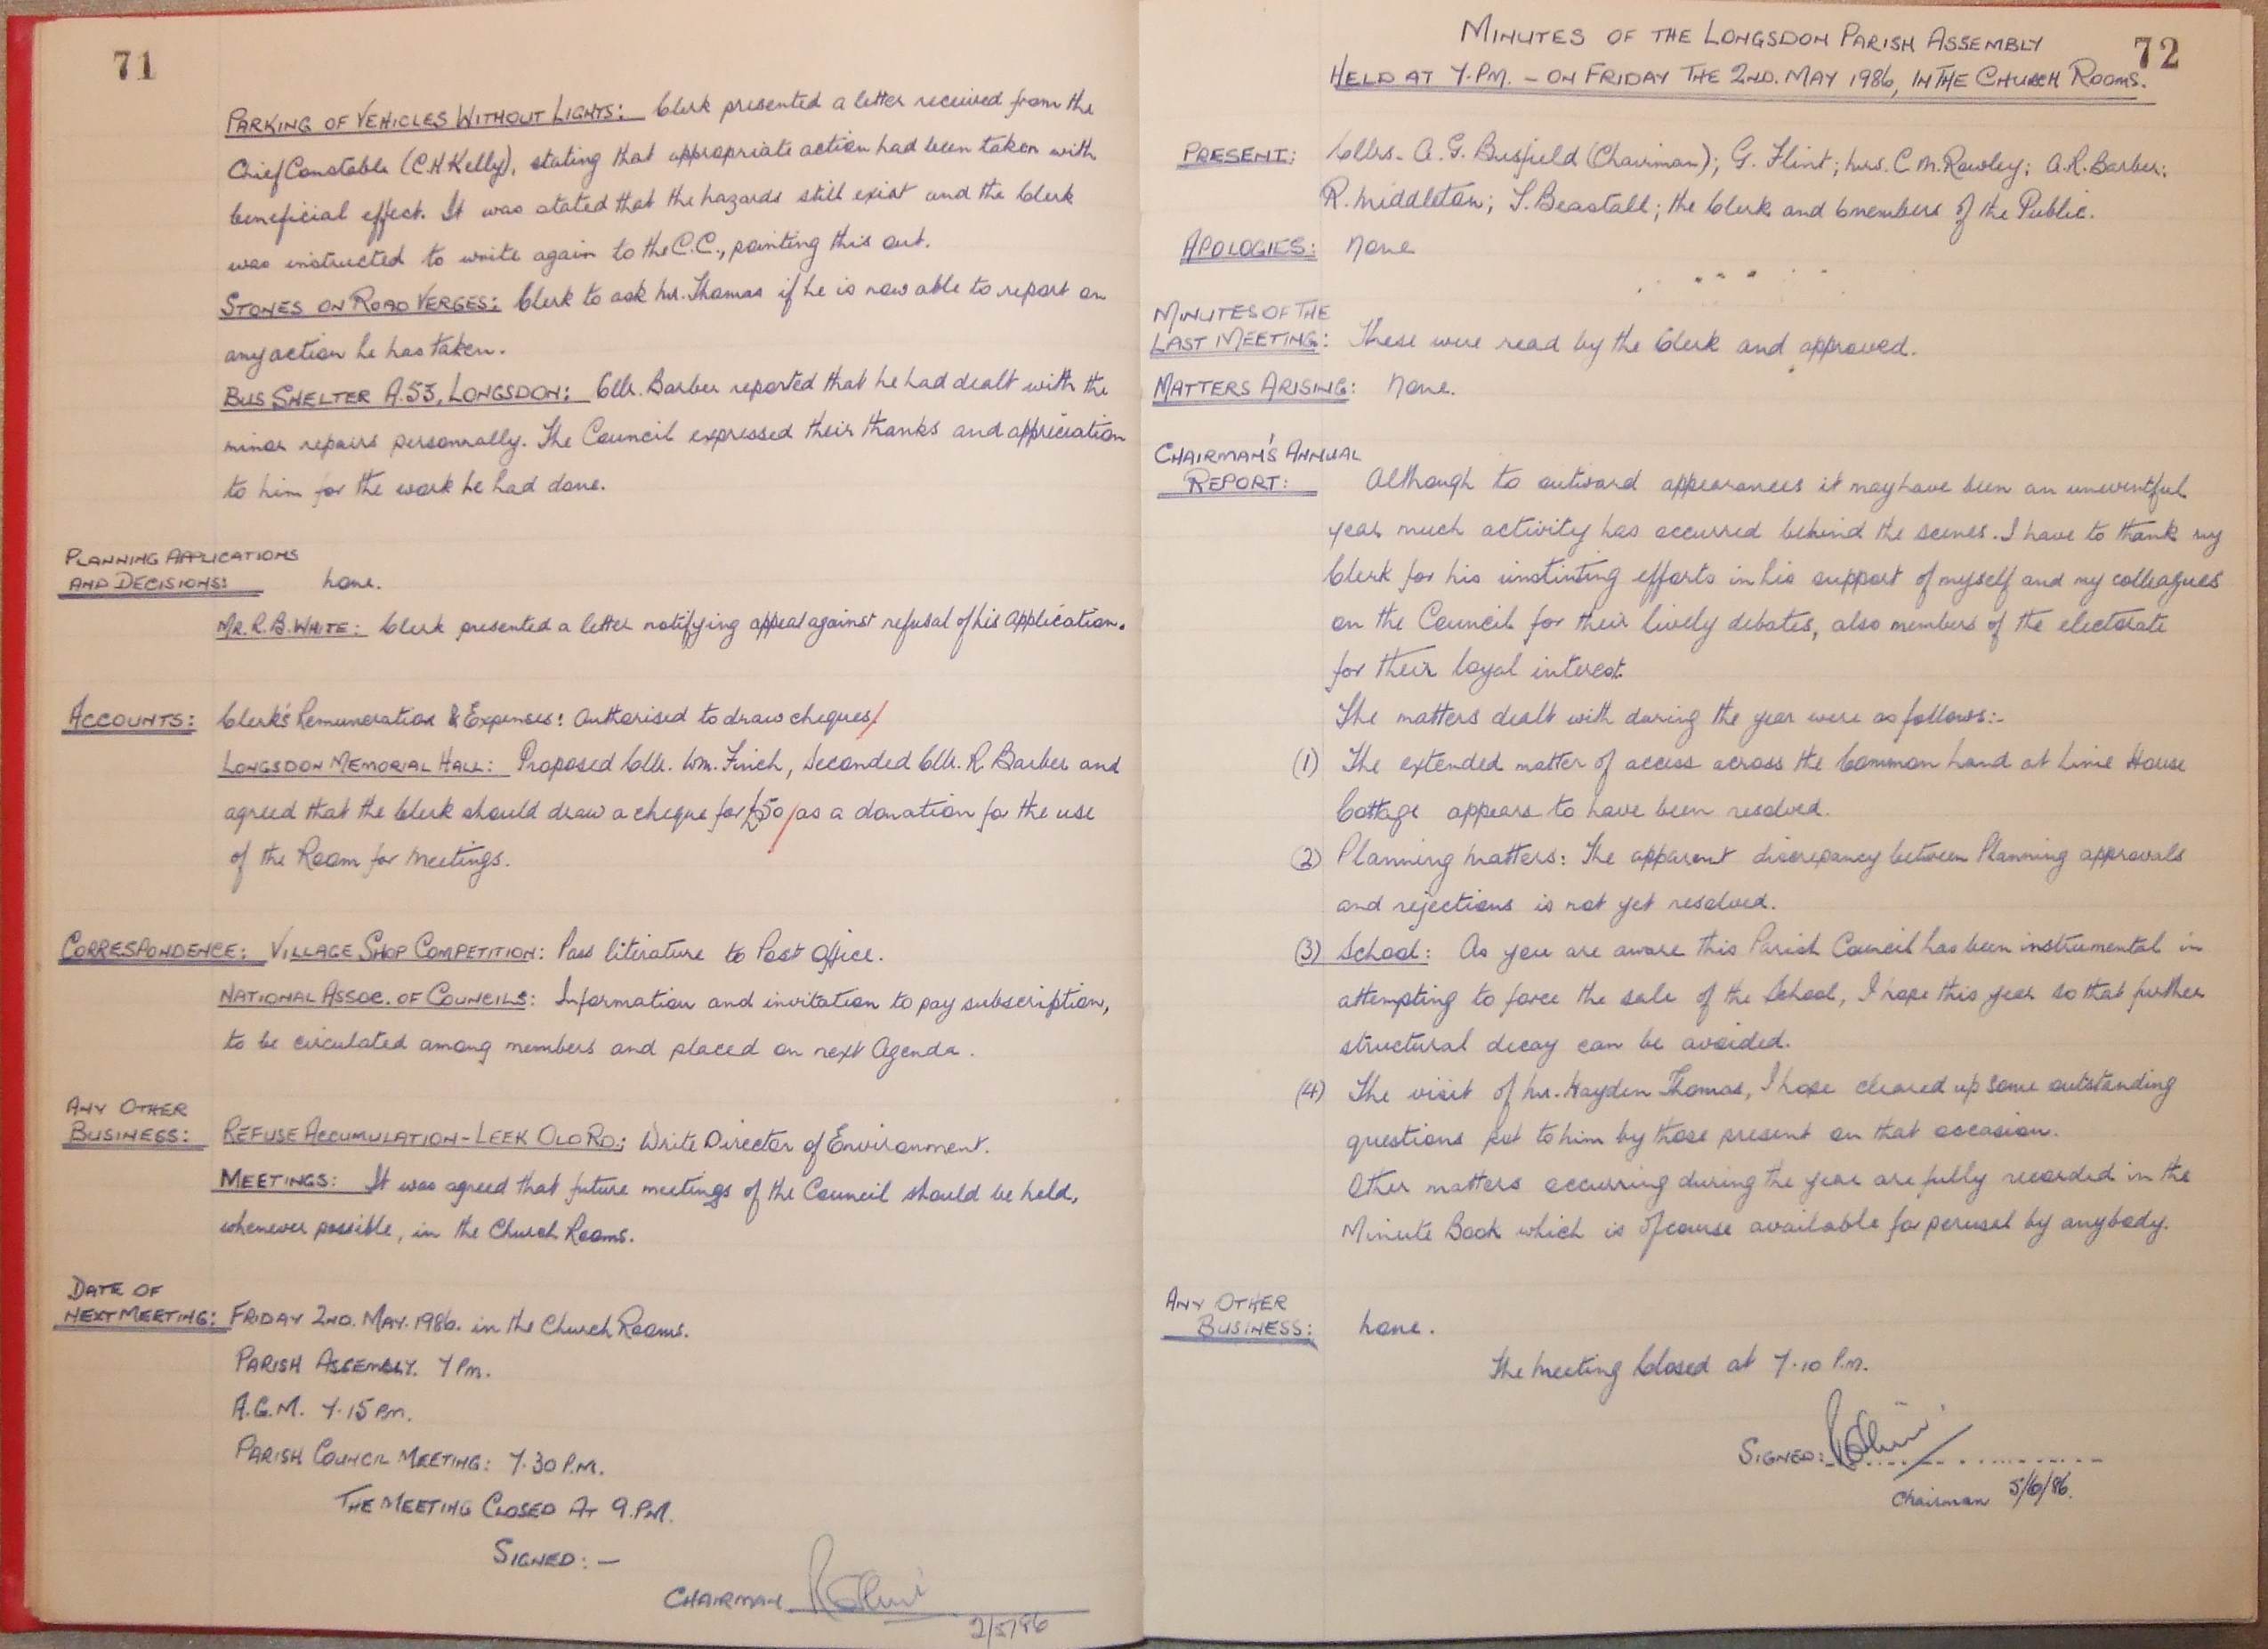 71
PARKING OF VEHICLES WITHOUT LIGHTS: Clerk presented a letter received from the
Chief Constable (C.H Kelly), stating that appropriate action had been taken with
beneficial effect. It was stated that the hazards still exist and the Clerk
was instructed to write again to the C.C., pointing this out.
STONES ON ROAD VERGES: Clerk to ask Mr. Thomas if he is now able to report on
any action he has taken.
BUS SHELTER A.53, LONGSDON: Cllr. Barber reported that he had dealt with the
minor repairs personnally. The Council expressed their thanks and appreciation
to him for the work he had done.
PLANNING APPLICATIONS
AND DECISIONS: None.
MR. R.B. WHITE: Clerk presented a letter notifying appeal against refusal of his application.
ACCOUNTS: Clerk's Remuneration & Expenses: Authorised to draw cheques/
LONGSDON MEMORIAL HALL: Proposed Cllr. Wm. Finch, Seconded Cllr. R. Barber and
agreed that the Clerk should draw a cheque for £50/as a donation for the use
of the Room for Meetings.
CORRESPONDENCE: VILLAGE SHOP COMPETITION: Pass literature to Post Office.
NATIONAL ASSOC. OF COUNCILS: Information and invitation to pay subscription,
to be circulated among members and placed on next Agenda.
ANY OTHER
BUSINESS: REFUSE ACCUMULATION - LEEK OLD RD.: Write Director of Environment.
MEETINGS: It was agreed that future meetings of the Council should be held,
whenever possible, in the Church Rooms.
DATE OF
NEXT MEETING: FRIDAY 2ND. MAY. 1986. in the Church Rooms.
PARISH ASSEMBLY. 7 PM.
A.G.M. 7.15 PM.
PARISH COUNCIL MEETING: 7.30 P.M.
THE MEETING CLOSED AT 9.P.M.
SIGNED: —
CHAIRMAN
2/5/86
72
MINUTES OF THE LONGSDON PARISH ASSEMBLY
HELD AT 7.PM. - ON FRIDAY THE 2ND. MAY 1986, IN THE CHURCH ROOMS.
PRESENT: Cllrs. A.G. Busfield (Chairman); G. Flint; Mrs. C.M. Rowley; A.R. Barber;
R. Middleton; S. Beastall; the Clerk and 6 members of the Public.
APOLOGIES: None
MINUTES OF THE
LAST MEETING: These were read by the Clerk and approved.
MATTERS ARISING: None.
CHAIRMAN'S ANNUAL
REPORT: Although to outward appearances it may have been an uneventful
year much activity has occurred behind the scenes. I have to thank my
Clerk for his unstinting efforts in his support of myself and my colleagues
on the Council for their lively debates, also members of the electorate
for their loyal interest.
The matters dealt with during the year were as follows:-
(1) The extended matter of access across the Common Land at Lime House
Cottage appears to have been resolved.
(2) Planning Matters: The apparent discrepancy between Planning approvals
and rejections is not yet resolved.
(3) School: As you are aware this Parish Council has been instrumental in
attempting to force the sale of the School, I hope this year so that further
structural decay can be avoided.
(4) The visit of Mr. Hayden Thomas, I hope cleared up some outstanding
questions put to him by those present on that occasion.
Other matters occurring during the year are fully recorded in the
Minute Book which is of course available for perusal by anybody.
ANY OTHER
BUSINESS: None.
The Meeting Closed at 7.10 P.M.
SIGNED:
Chairman 5/6/86.